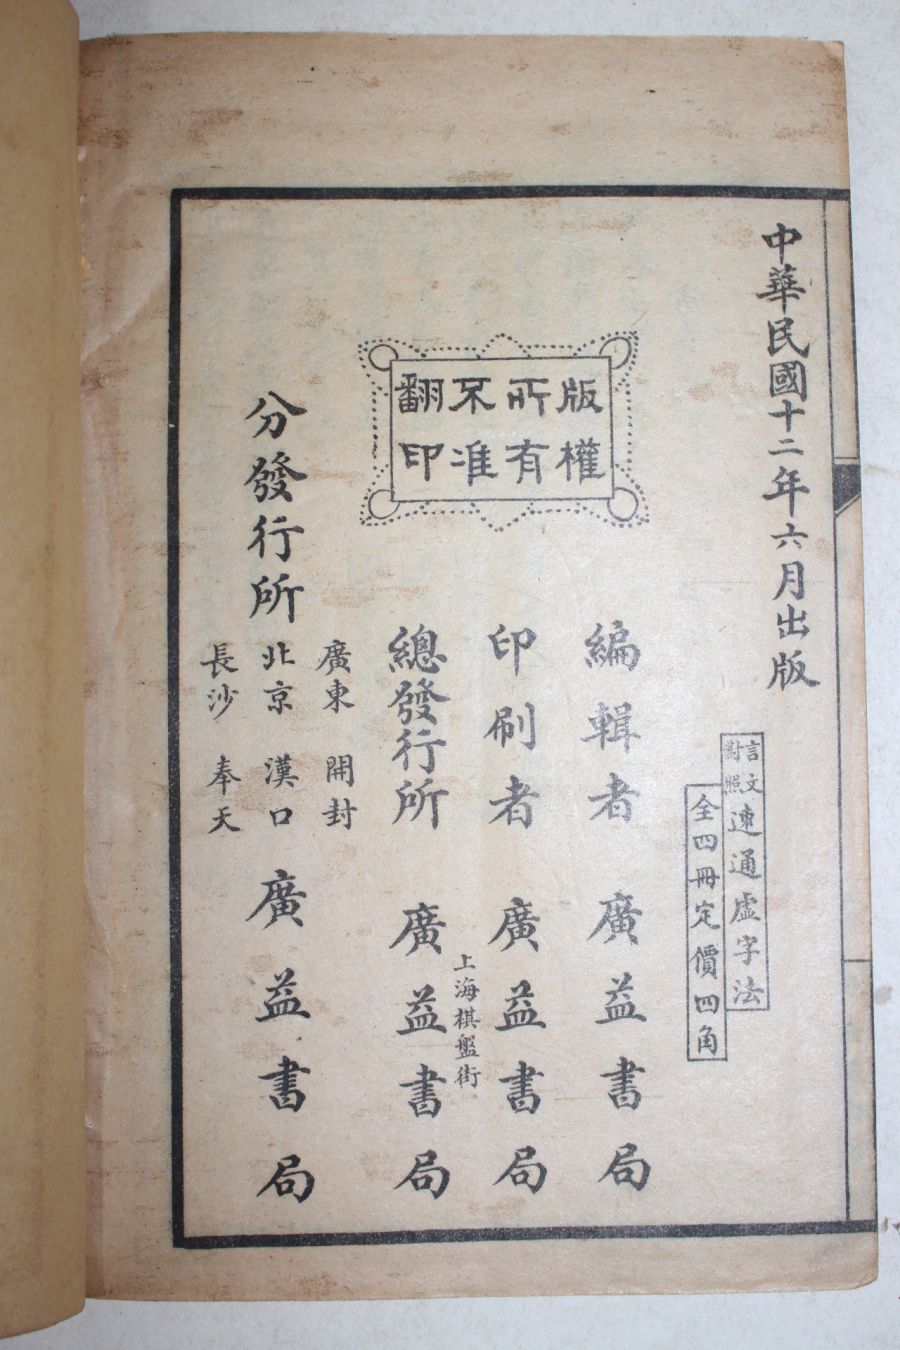 中華民國十二年六月出版
言文對照速通虛字法
全四冊定價四角
版權所有不准翻印
編輯者 廣益書局
印刷者 廣益書局
上海棋盤街
總發行所 廣益書局
分發行所
廣東 開封
北京 漢口
長沙 奉天
廣益書局